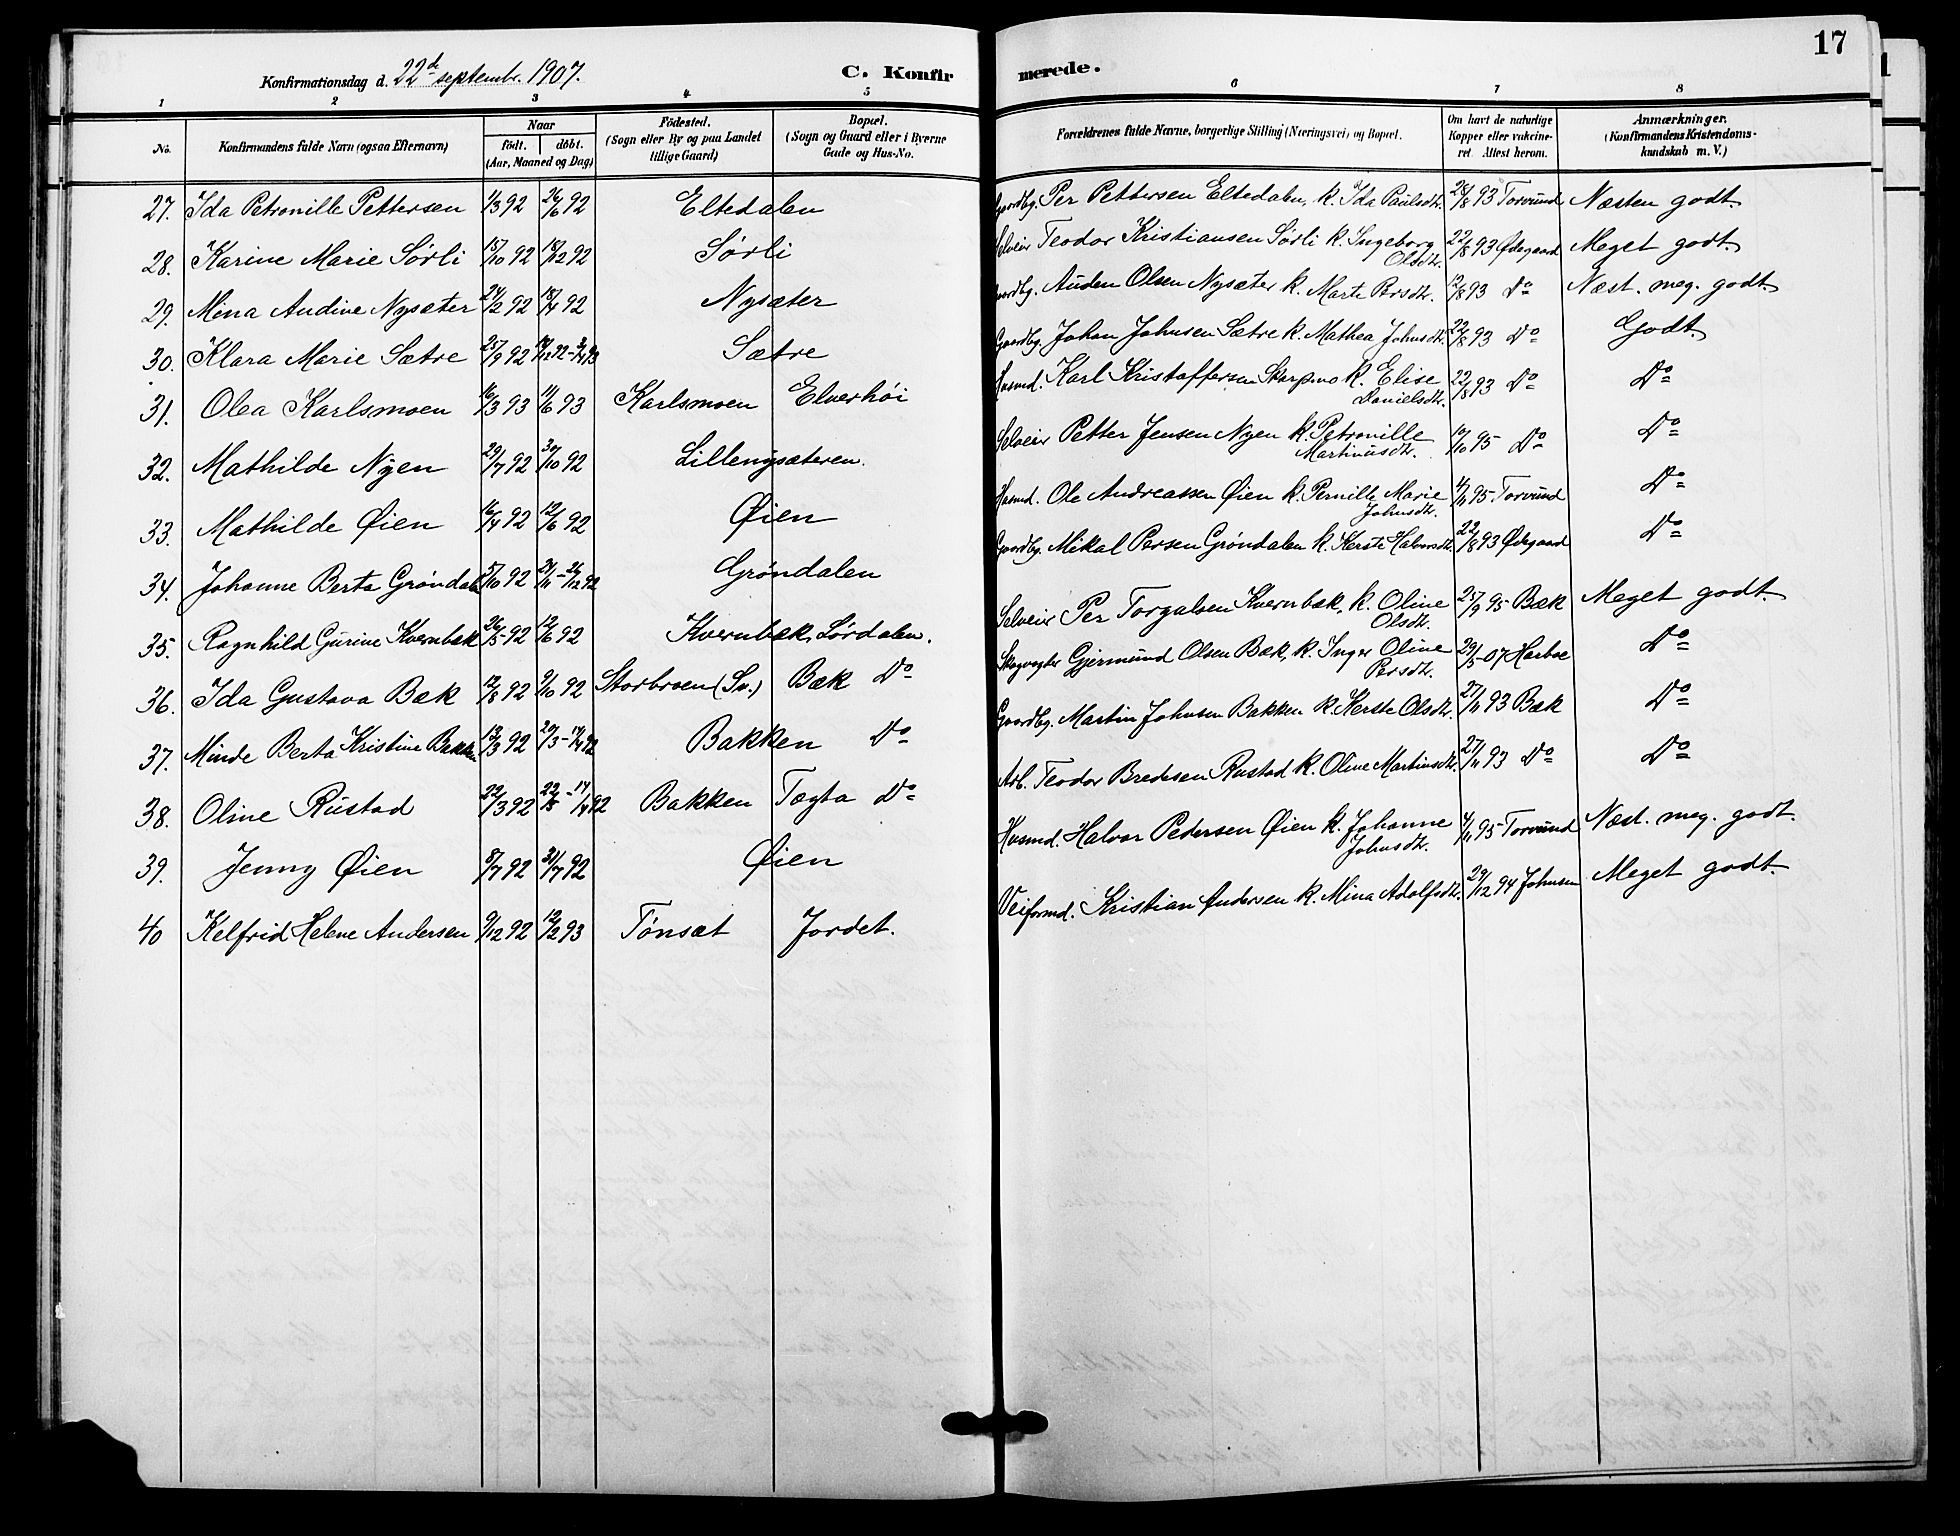 17
Konfirmationsdag d. 22de septembr. 1907.
C. Konfirmerede.
1 2 3 4 5 6 7 8
No. Konfirmandens fulde Navn (ogsaa Efternavn) Naar födt. döbt. (Aar, Maaned og Dag) Födested. (Sogn eller By og paa Landet tillige Gaard) Bopæl. (Sogn og Gaard eller i Byerne Gade og Hus-No. Forældrenes fulde Navne, borgerlige Stilling (Næringsvei) og Bopæl. Om havt de naturlige Kopper eller vakcineret. Attest herom. Anmærkninger. (Konfirmandens Kristendomskundskab m. V.)
27. Ida Petronille Pettersen 1/3 92 26/6 92 Eltedalen Gaardbg. Per Pettersen Eltedalen, k. Ida Paulsdtr. 28/8 93 Torvund Næsten godt.
28. Karine Marie Sørli 15/10 92 18/12 92 Sørli Selveir Teodor Kristiansen Sørli k. Ingeborg Olsdtr. 22/8 93 Ødegaard Meget godt.
29. Mina Audine Nysæter 24/2 92 18/4 92 Nysæter Gaardbg. Auden Olsen Nysæter k. Marte Persdtr. 12/8 93 Do Næst. meg. godt.
30. Klara Marie Sætre 25/9 92 Sætre Gaardbg. Johan Johnsen Sætre k. Mathea Johnsdtr. 22/8 93 Do Godt.
31. Olea Karlsmoen 16/3 93 11/6 93 Karlsmoen Elverhöi Husmd. Karl Kristoffersen Skarpmo k. Elise Danielsdtr. 22/8 93 Do Do
32. Mathilde Nyen 29/7 92 30/10 92 Lillenysæteren. Selveir Petter Jensen Nyen k. Petronille Martinusdtr. 19/10 95 Do Do
33. Mathilde Øien 16/4 92 12/6 92 Øien Husmd. Ole Andreassen Øien k. Pernille Marie Johnsdtr. 4/11 95 Torvund Do
34. Johanne Berta Gröndalen 5/10 92 Gröndalen Gaardbg. Mikal Persen Gröndalen k. Kerste Halvorsdtr. 22/8 93 Ødegaard Do
35. Ragnhild Gurine Kvernbæk 26/5 92 12/6 92 Kvernbæk, Lørdalen. Selveir Per Torgalsen Kvernbæk, k. Oline Olsdtr. 25/9 95 Bæk Meget godt.
36. Ida Gustava Bæk 12/8 92 9/10 92 Storbroen (Sv.) Bæk Do Skogvogter Gjermund Olsen Bæk, k. Inger Oline Persdtr. 29/5 - 07 Harboe Do
37. Minde Berta Kristine Bakken 13/3 92 Bakken Do Gaardbg. Martin Johnsen Bakken k. Kerste Olsdtr. 27/11 93 Bæk Do
38. Oline Rustad 22/3 92 Bakken Tægta Do Arb. Teodor Bredesen Rustad k. Oline Martinusdtr. 27/11 93 Do Do
39. Jenny Øien 8/7 92 31/7 92 Øien Husmd. Halvor Pedersen Øien k. Johanne Johnsdtr. 4/11 95 Torvund Næst. meg. godt.
40 Kelfrid Helene Andersen 9/12 92 12/2 93 Tönsæt Jordet. Veiformd. Kristian Andersen k. Mina Adolfsdtr. 29/12 94 Johnsen Meget godt.